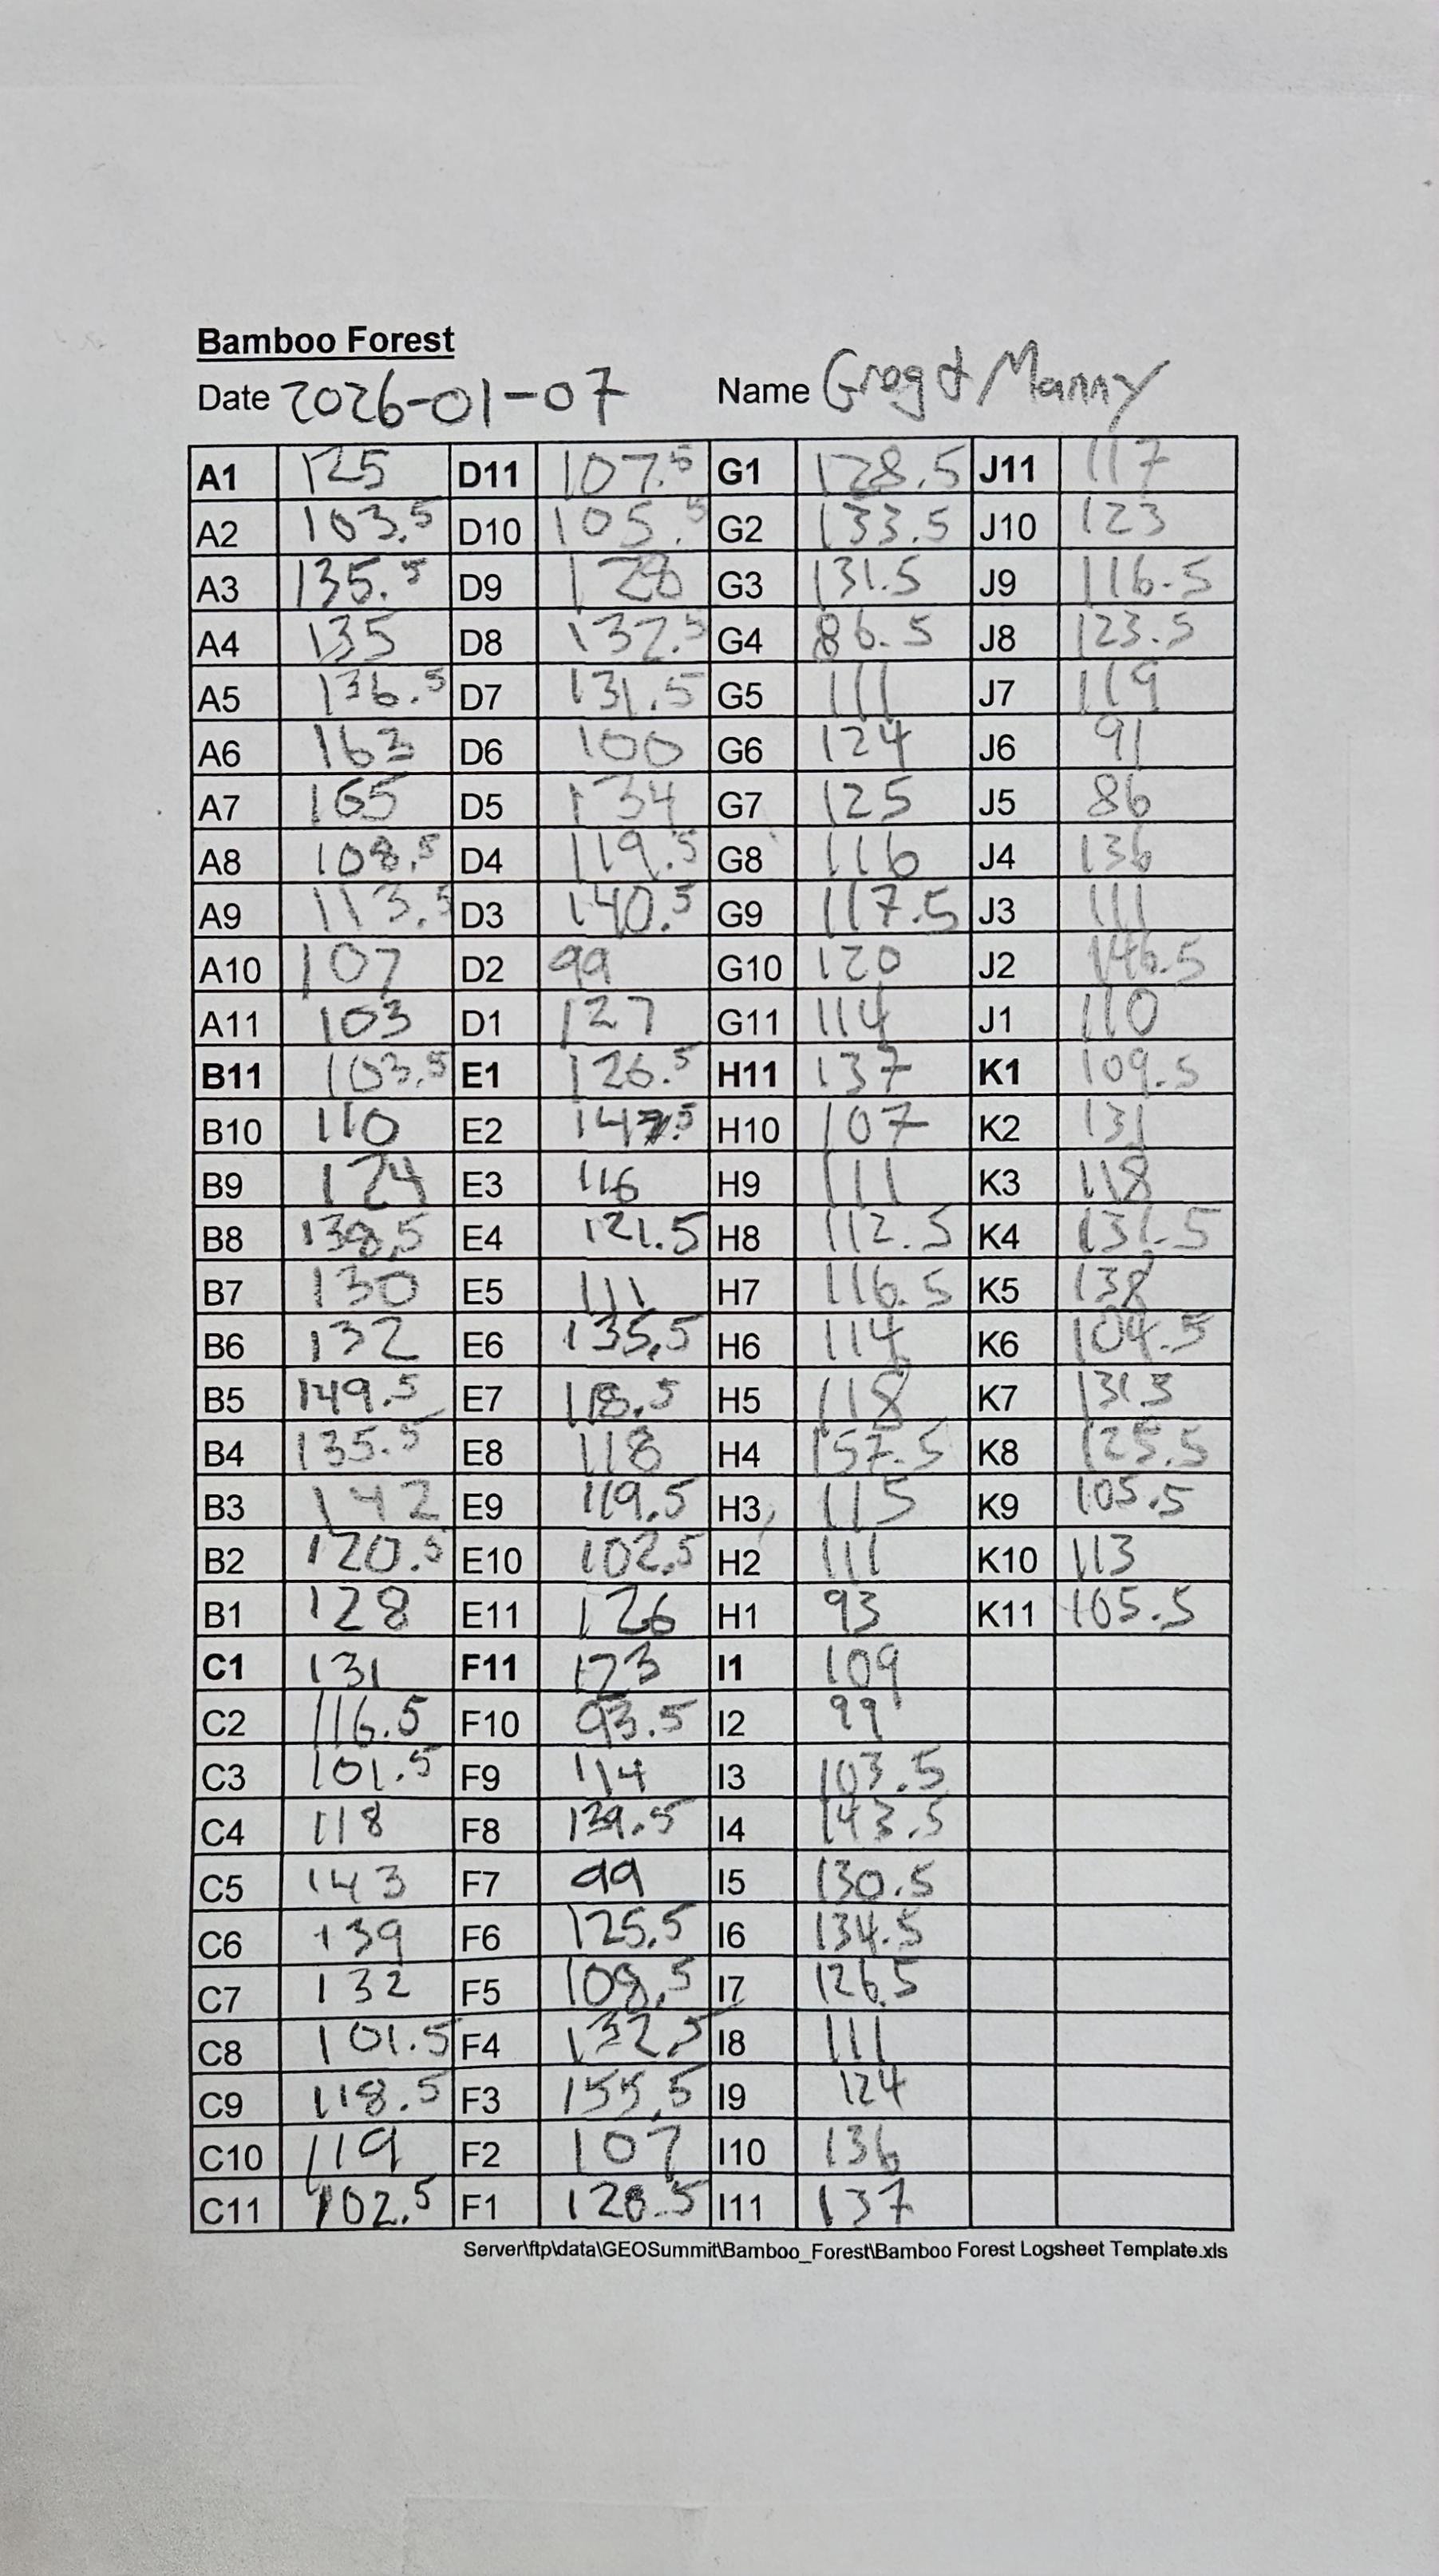 Bamboo Forest
Date 2026-01-07 Name Greg & Manny
A1 125 D11 107.5 G1 128.5 J11 117
A2 103.5 D10 105.5 G2 133.5 J10 123
A3 135.5 D9 128 G3 131.5 J9 116.5
A4 135 D8 132.5 G4 86.5 J8 123.5
A5 136.5 D7 131.5 G5 111 J7 119
A6 163 D6 100 G6 124 J6 91
A7 165 D5 134 G7 125 J5 86
A8 108.5 D4 119.5 G8 116 J4 136
A9 113.5 D3 140.5 G9 117.5 J3 111
A10 107 D2 99 G10 120 J2 146.5
A11 103 D1 127 G11 114 J1 110
B11 103.5 E1 126.5 H11 137 K1 109.5
B10 110 E2 147.5 H10 107 K2 131
B9 124 E3 116 H9 111 K3 118
B8 138.5 E4 121.5 H8 112.5 K4 131.5
B7 130 E5 111 H7 116.5 K5 138
B6 132 E6 135.5 H6 114 K6 104.5
B5 149.5 E7 118.5 H5 118 K7 131.5
B4 135.5 E8 118 H4 157.5 K8 125.5
B3 142 E9 119.5 H3 115 K9 105.5
B2 120.5 E10 102.5 H2 111 K10 113
B1 128 E11 126 H1 93 K11 105.5
C1 131 F11 123 I1 109
C2 116.5 F10 93.5 I2 99
C3 101.5 F9 114 I3 103.5
C4 118 F8 139.5 I4 143.5
C5 143 F7 99 I5 130.5
C6 139 F6 125.5 I6 134.5
C7 132 F5 108.5 I7 126.5
C8 101.5 F4 132.5 I8 111
C9 118.5 F3 155.5 I9 124
C10 119 F2 107 I10 136
C11 102.5 F1 128.5 I11 137
Server\ftp\data\GEOSummit\Bamboo_Forest\Bamboo Forest Logsheet Template.xls